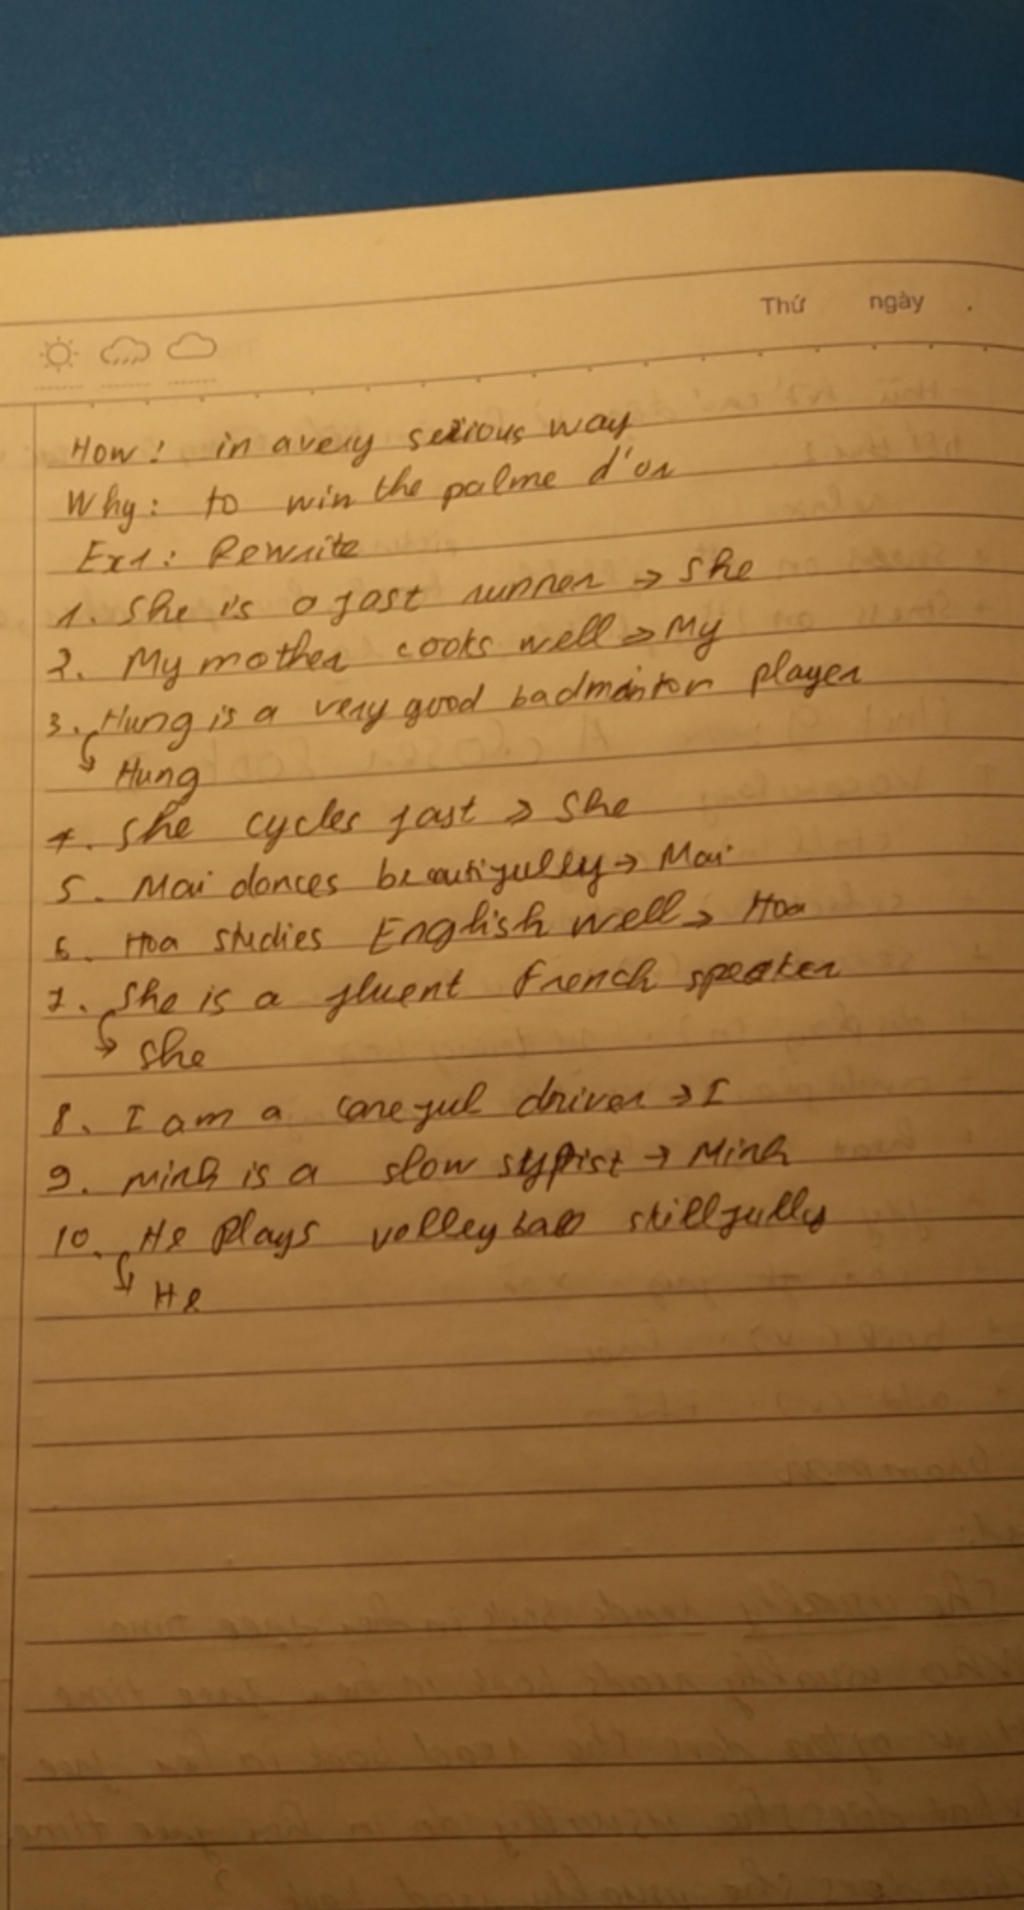 Thứ ngày .
How: in a very serious way
Why: to win the palme d'or
Ex1: Rewrite
1. She is a fast runner → She
2. My mother cooks well → My
3. Hung is a very good badminton player
→ Hung
4. She cycles fast → She
5. Mai dances beautifully → Mai
6. Hoa studies English well → Hoa
7. She is a fluent French speaker
→ She
8. I am a careful driver → I
9. Minh is a slow styprist → Minh
10. He Plays volleyball skillfully
→ He